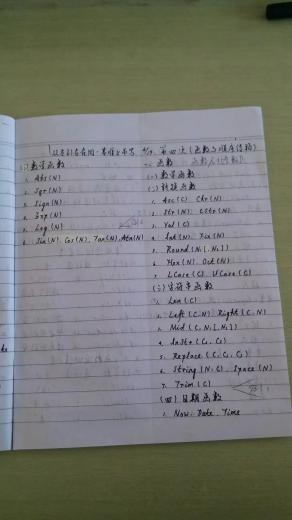 (一)数学函数
1. Abs(N)
2. Sqr(N)
3. Sign(N)
4. Exp(N)
5. Log(N)
6. Sin(N). Cos(N), Tan(N), Atn(N)
第四次(函数与顺序结构)
一、函数
(一)数学函数
(二)转换函数
1. Asc(C) Chr(N)
2. Str(N). CStr(N)
3. Val(C)
4. Int(N) Fix(N)
5. Round(N[,N1])
6. Hex(N). Oct(N)
7. LCase(C). UCase(C)
(三)字符串函数
1. Len(C)
2. Left(C,N) Right(C,N)
3. Mid(C,N1[,N2])
4. InStr(C1,C2)
5. Replace(C,C1,C2)
6. String(N,C). Space(N)
7. Trim(C)
(四)日期函数
1. Now. Date. Time